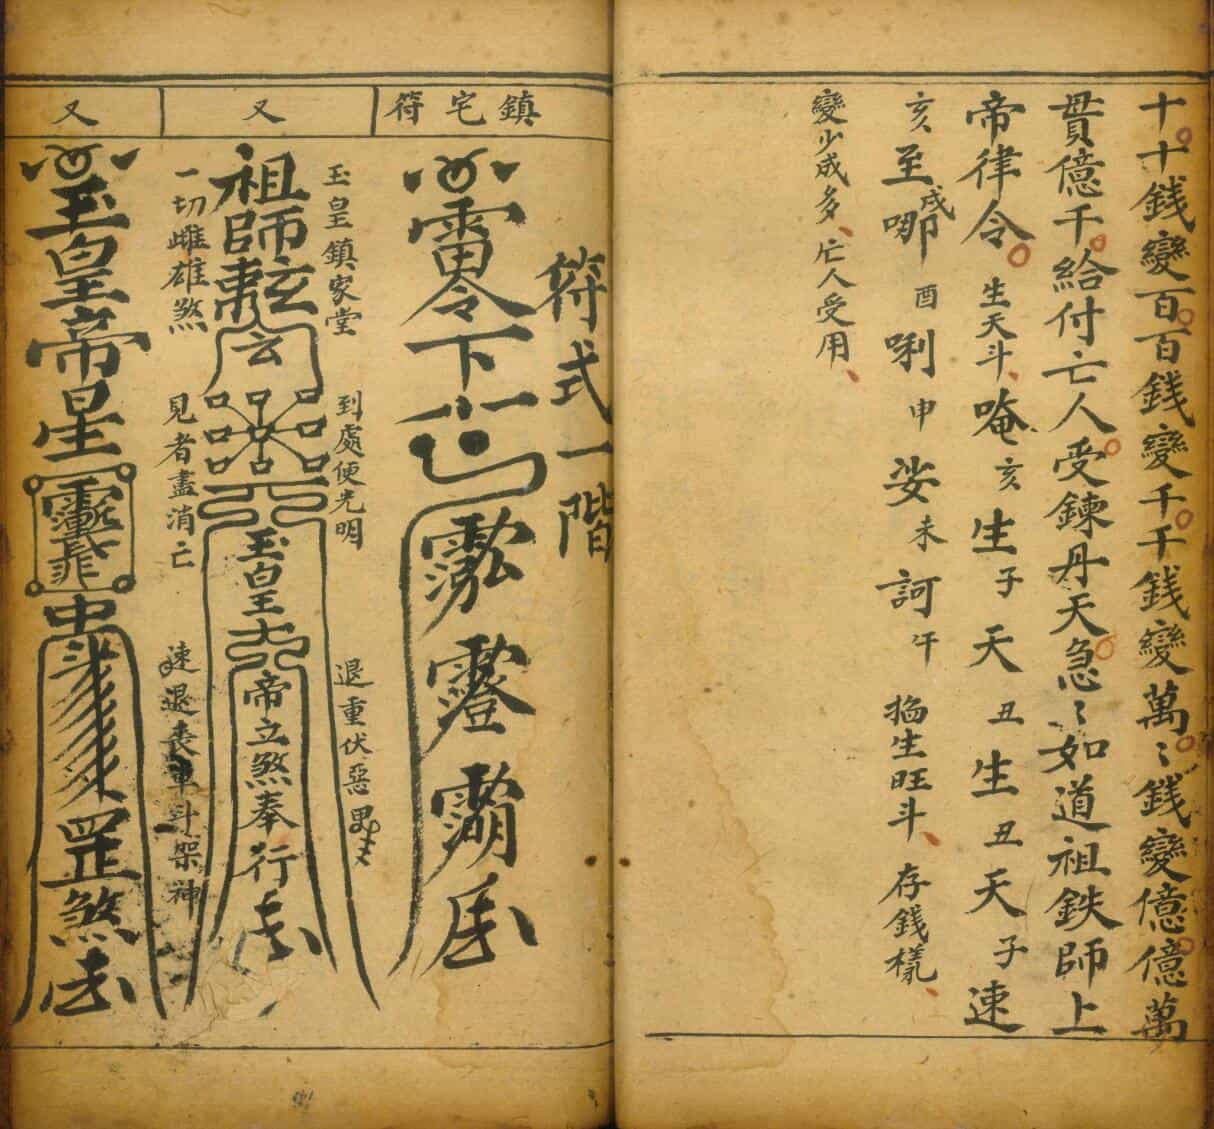 十十錢變百百錢變千千錢變萬〻錢變億億萬
貫億千給付亡人受鍊丹天急〻如道祖鉄師上
帝律令生天斗唵亥生子天丑生丑天子速
亥至戌哪酉唎申娑未訶午 生旺斗存錢樣
變少成多亡人受用
符式一階
鎮宅符
雷令下
玉皇鎮家堂 到處使光明 退重伏惡
又
祖師
玉皇
帝立煞奉行
一切雌雄煞 見者盡消亡 速退喪車斗架神
又
玉皇帝星
罡煞